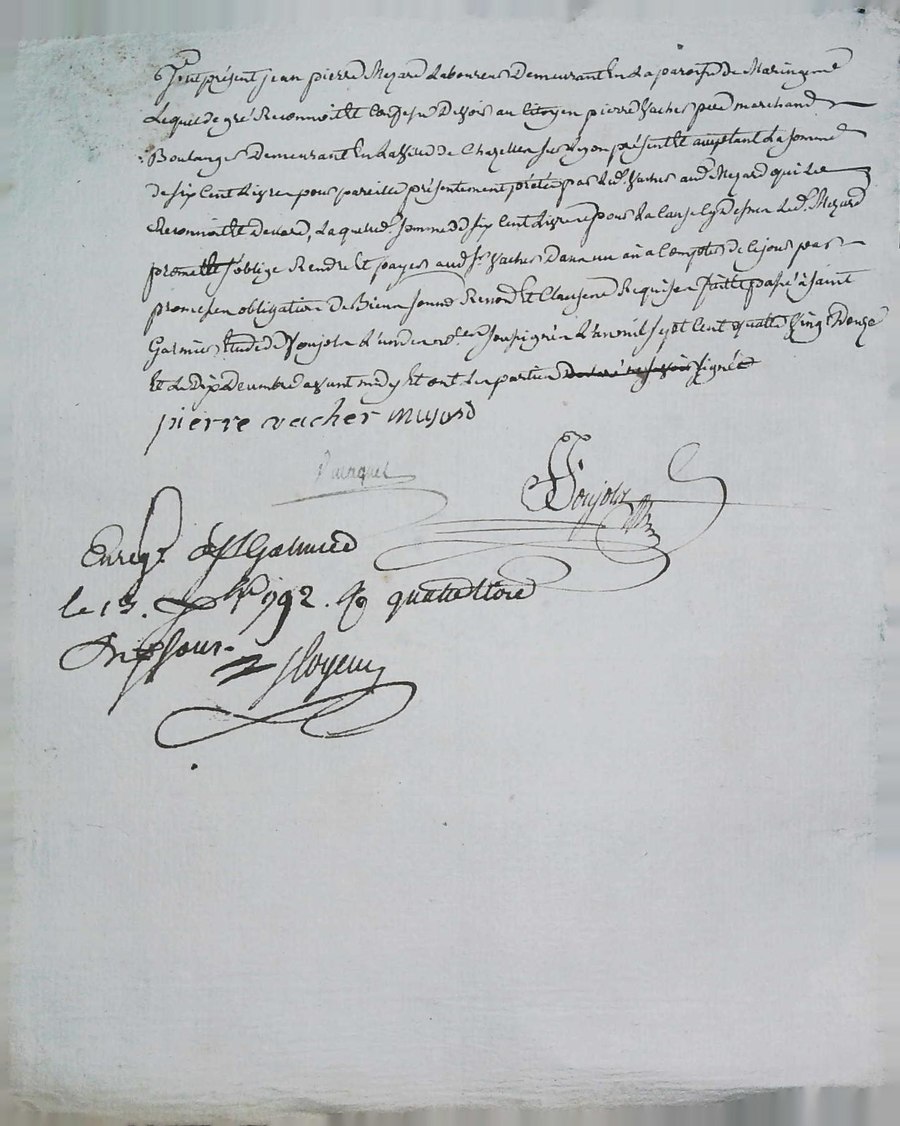 fut présent jean pierre Mezard Laboureur Demeurant En La paroisse de Maringe
Lequel de gré Reconnoit et Confesse Devoir au Citoyen pierre Vacher marchand
Boulanger Demeurant En La Ville de Chazelles sur Lyon présent et acceptant La somme
de six Cent Livres pour pareille présentement prêtée par Led. Vacher aud. Mezard qui Le
Reconnoit Laquelle somme de six Cent Livres pour La Cause Cy Dessus Led. Mezard
promet s'oblige Rendre et payer aud. Sr Vacher Dans un an a Compter de Ce jour par
promesse obligation de Biens Renond. et Clauses Requises fait et passé à Saint
Galmier Etude de Poujols L'un des not. soussignés L'an mil sept Cent quatre Vingt Douze
Et Le Dix Décembre avant midy Et ont Les parties signé
pierre vacher mezard
Poujols
Enregt. à St Galmier
le 13. Xbre 1792. R quatre livres
Dix sous